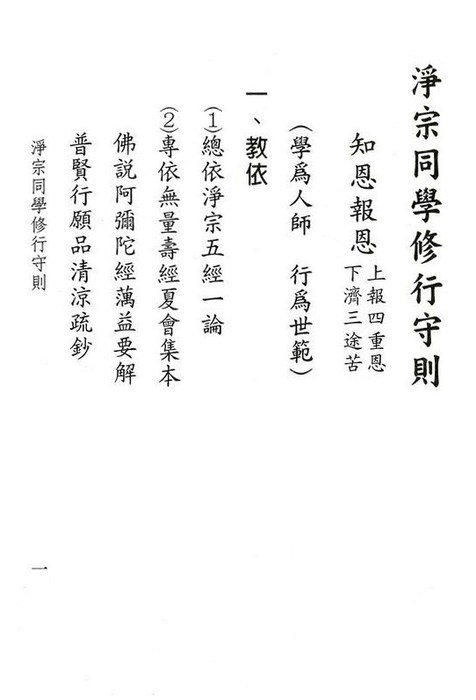 淨宗同學修行守則
知恩報恩
上報四重恩
下濟三途苦
(學爲人師 行爲世範)
一、教依
(1)總依淨宗五經一論
(2)專依無量壽經夏會集本
佛説阿彌陀經蕅益要解
普賢行願品清涼疏鈔
淨宗同學修行守則
一